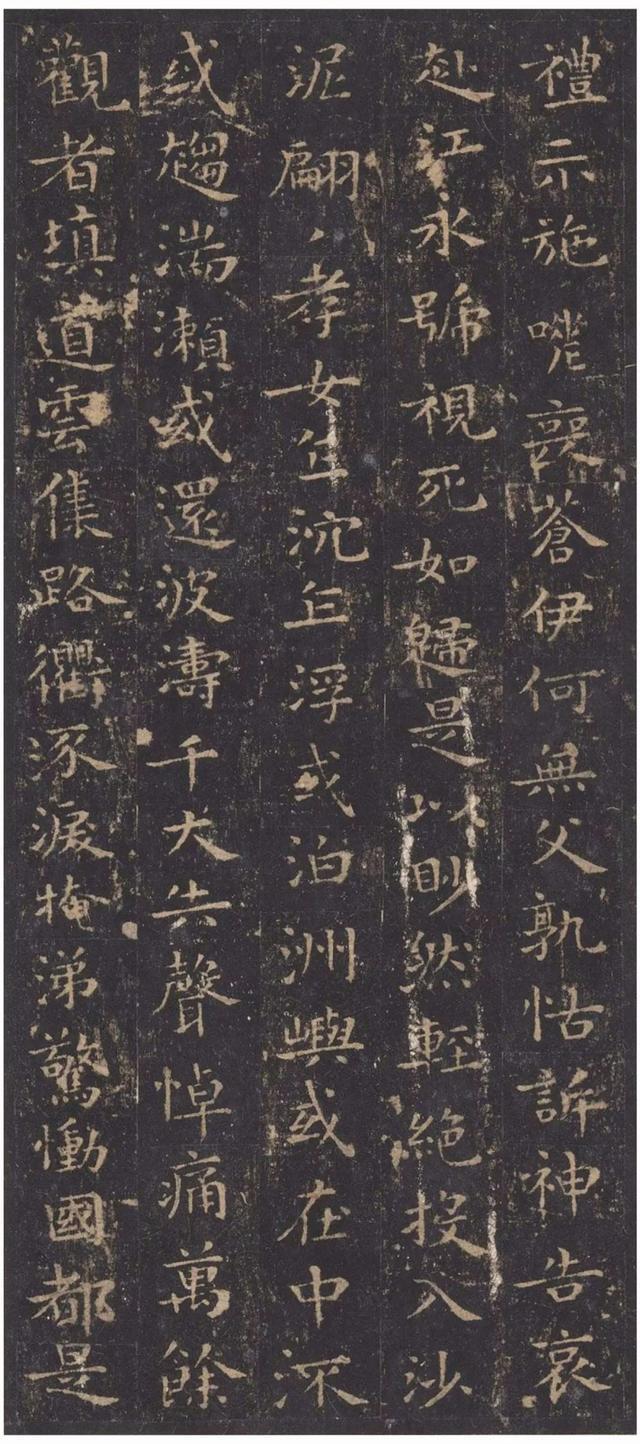 禮示施嘡喪蒼伊何無父孰怙訴神告哀
赴江永號視死如歸是以眇然輕絶投入沙
泥翩〻孝女乍沉乍浮或泊洲嶼或在中流
或趨湍瀨或還波濤千夫失聲悼痛萬餘
觀者填道雲集路衢泳淚掩涕驚慟國都是